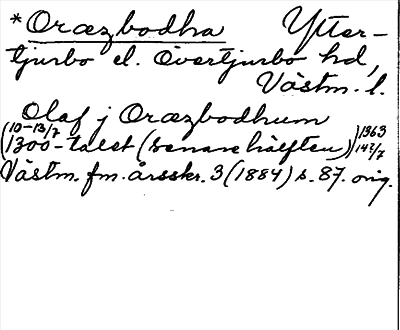 *Oræzbodha Ytter-
tjurbo el. Övertjurbo hd,
Västm. l.
Olaf j Oræzbodhum
(10-13/7 1363
(1300-talet (senare hälften)) 14 2/7
Västm. fm. årsskr. 3 (1884) s. 87. orig.